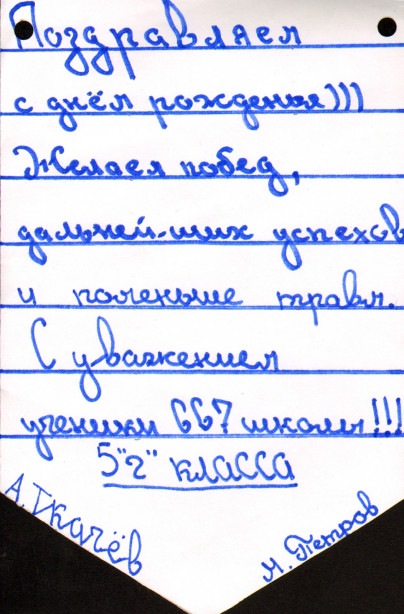 Поздравляем
с днём рожденья)))
Желаем побед,
дальней-ших успехов
и поменьше травм.
С уважением
ученики 667 школы!!!
5"г" класса
А.Ткачёв
М.Петров